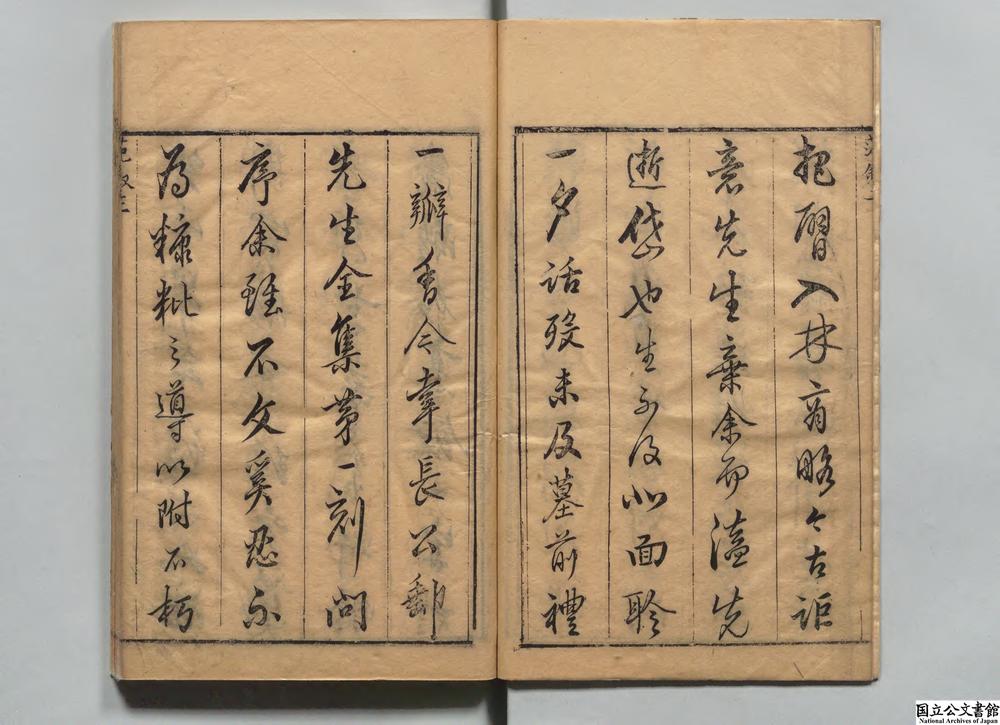 把臂入林商略今古詎
意先生棄余而溘先
逝岱也生不及北面聆
一夕話歿未及墓前禮
一瓣香今幸長公郵
先生全集第一刻問
序余雖不文奚忍不
為糠粃之導以附不朽
国立公文書館
National Archives of Japan